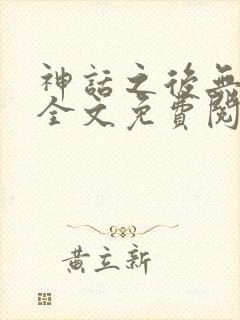 神話之後無
全文免費閱
黃立新